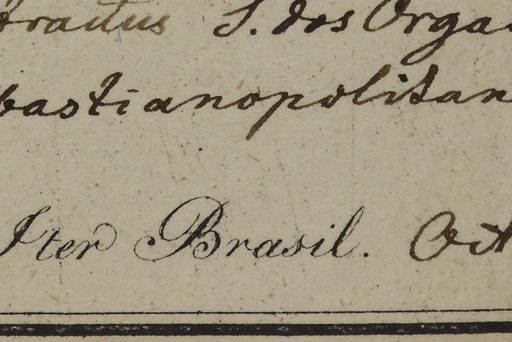 tractus S. dos Orga
bastianopolitan
Iter Brasil. Oct